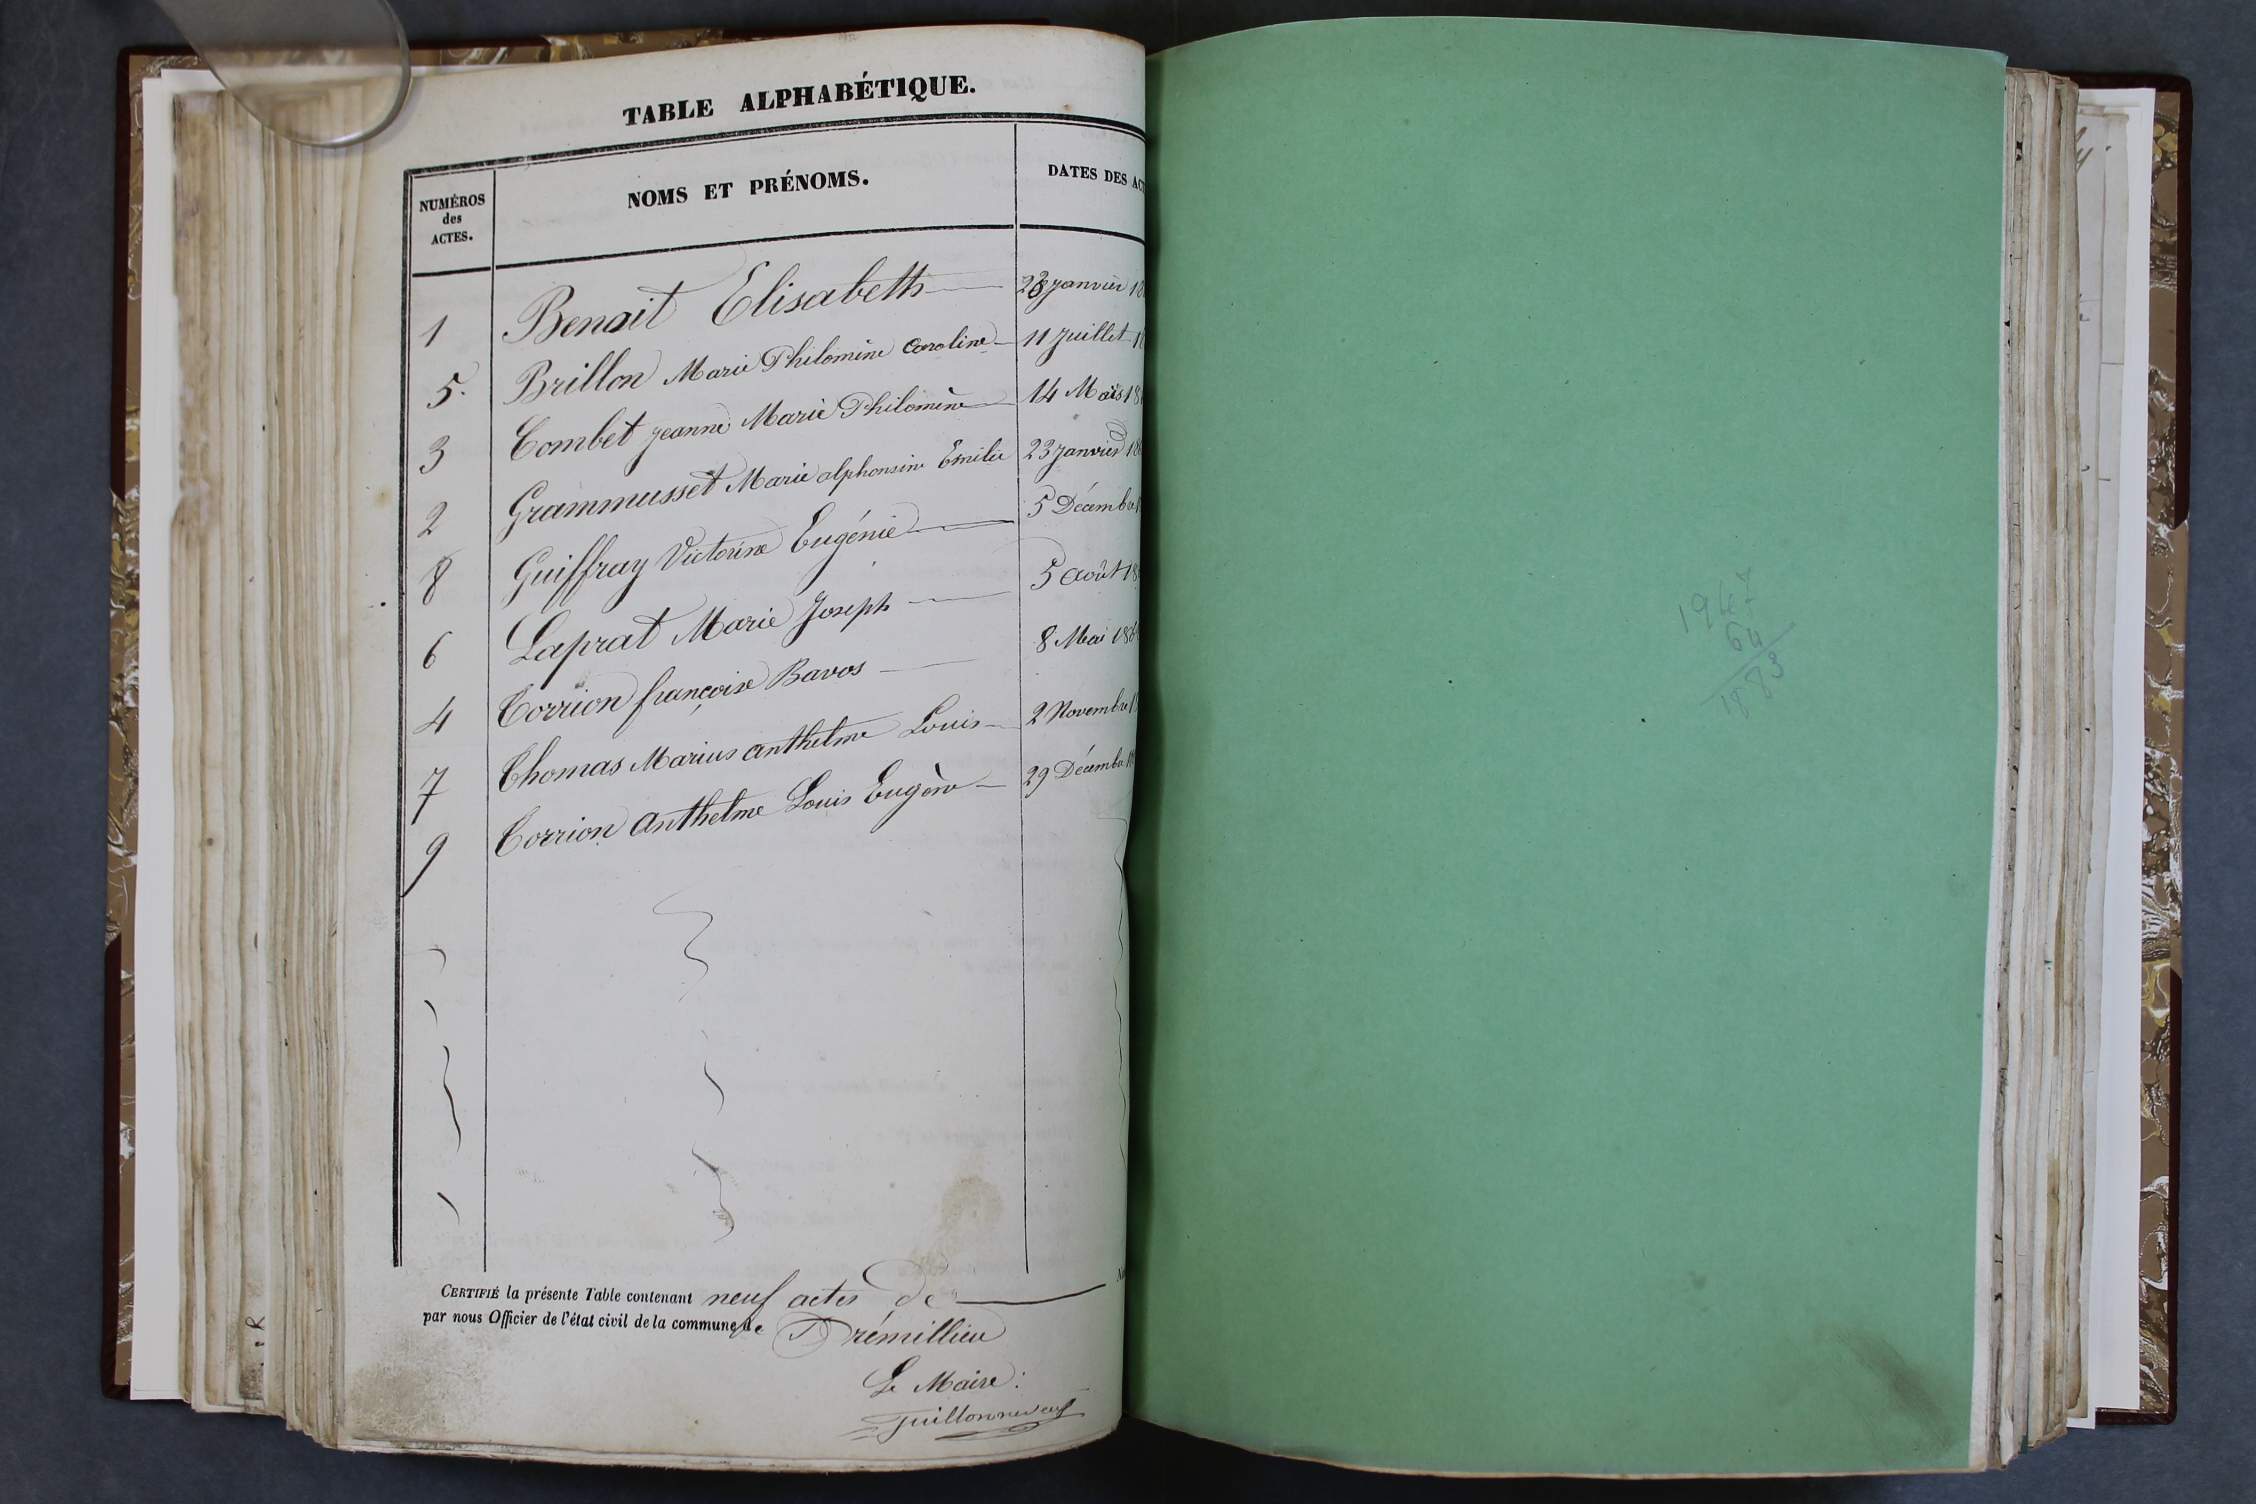 TABLE ALPHABÉTIQUE.
NUMÉROS
des
ACTES.
NOMS ET PRÉNOMS.
DATES DES ACT
1 Benoit Elisabeth 23 janvier 18
5. Brillon Marie Philomine Caroline 11 Juillet 18
3 Combet jeanne Marie Philomène 14 Mars 18
2 Grammusset Marie alphonsine Emilie 23 janvier 18
8 Guiffray Victorine Eugénie 5 Décembre 1
6 Laprat Marie Joseph 5 Août 18
4 Torrion françoise Bavos 8 Mai 186
7 Thomas Marius anthelme Louis 2 Novembre 1
9 Torrion Anthelme Louis Eugène 29 Décembre
CERTIFIÉ la présente Table contenant neuf actes De
par nous Officier de l'état civil de la commune de Prémillieu
Le Maire:
Guillonneuf
1947
64
1883